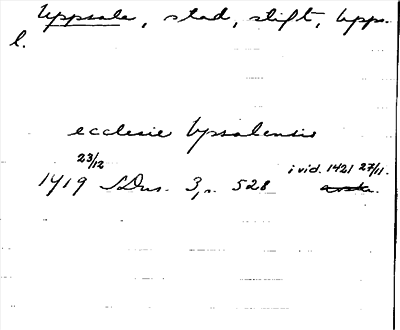 Uppsala, stad, stift, Upps.
l.
ecclesie Upsalensis
23/12 i vid. 1421 27/11.
1419 SDns. 3, s. 528